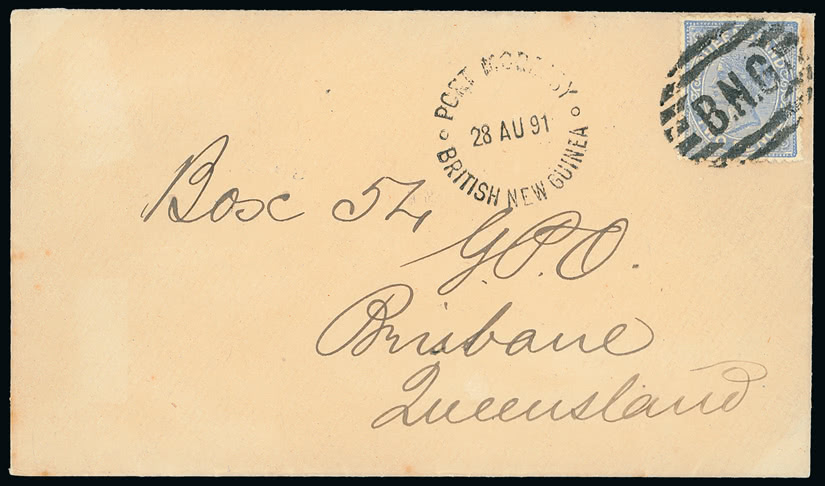 PORT MORESBY
28 AU 91
BRITISH NEW GUINEA
B.N.G
Box 54
G.P.O.
Brisbane
Queensland